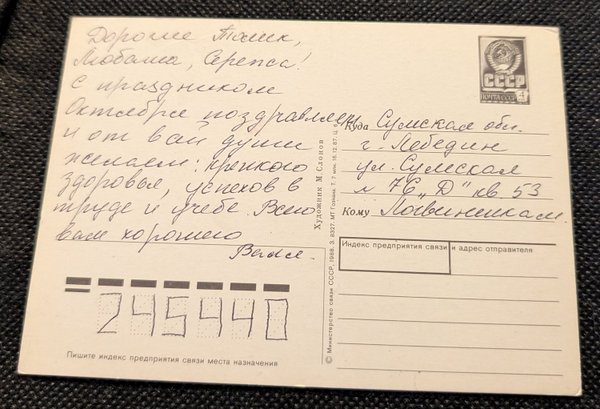 Дорогие Томик,
Любаша, Сережа!
С праздником
Октября поздравляем
и от всей души
желаем: крепкого
здоровья, успехов в
труде и учебе. Всего
вам хорошего
Валя.
СССР
ПОЧТА СССР
4
Куда Сумская обл.
г. Лебедин
ул. Сумская
76 „Д" кв 53
Кому
Индекс предприятия связи и адрес отправителя
Художник М. Слонов
© Министерство связи СССР, 1988. З. 8327. МТ Гознака.
245440
Пишите индекс предприятия связи места назначения